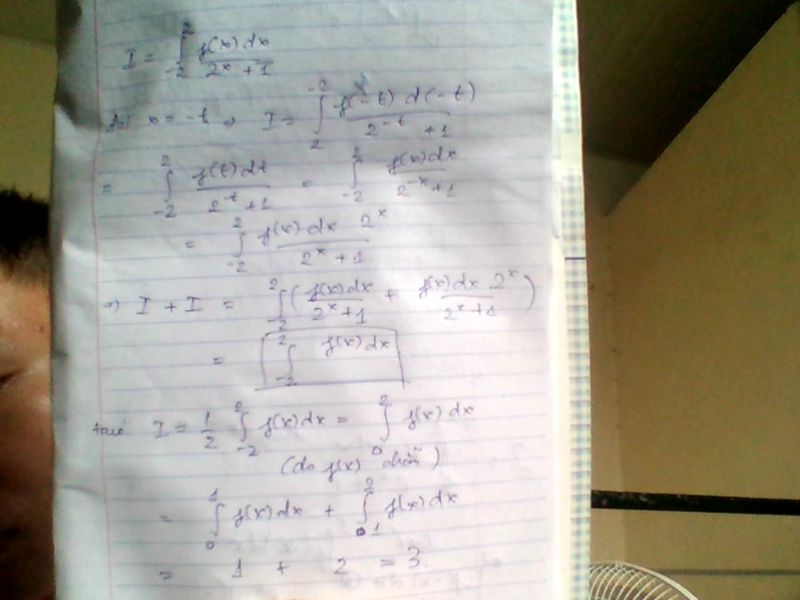 I = ∫_{-2}^{2} f(x)dx / (2^x + 1)
x = -t ⇒ I = ∫_{2}^{-2} f(-t) d(-t) / (2^{-t} + 1)
= ∫_{-2}^{2} f(t)dt / (2^{-t} + 1) = ∫_{-2}^{2} f(x)dx / (2^{-x} + 1)
= ∫_{-2}^{2} f(x)dx 2^x / (2^x + 1)
⇒ I + I = ∫_{-2}^{2} ( f(x)dx / (2^x + 1) + f(x)dx.2^x / (2^x + 1) )
= ∫_{-2}^{2} f(x)dx
I = 1/2 ∫_{-2}^{2} f(x)dx = ∫_{0}^{2} f(x)dx
(do f(x) chẵn)
= ∫_{0}^{1} f(x)dx + ∫_{1}^{2} f(x)dx
= 1 + 2 = 3.